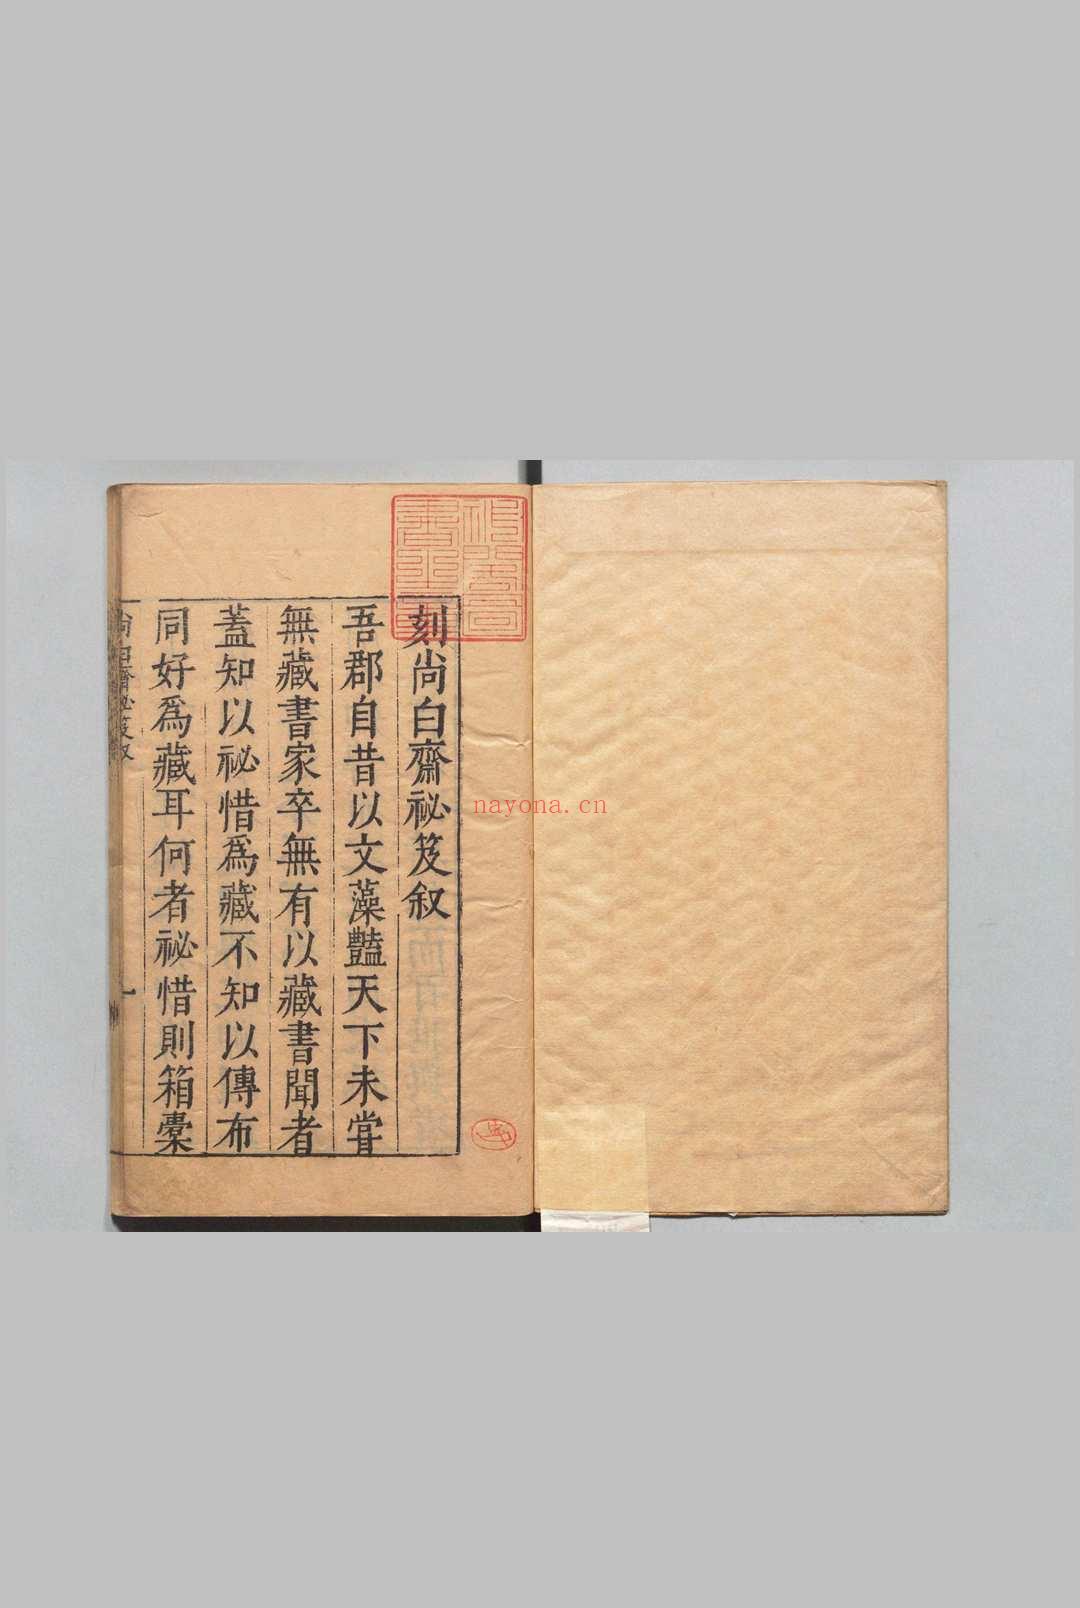 刻尚白齋祕笈叙
吾郡自昔以文藻豔天下未嘗
無藏書家卒無有以藏書聞者
蓋知以祕惜爲藏不知以傳布
同好爲藏耳何者祕惜則箱橐
尙白齋祕笈叙
一
nayona.cn